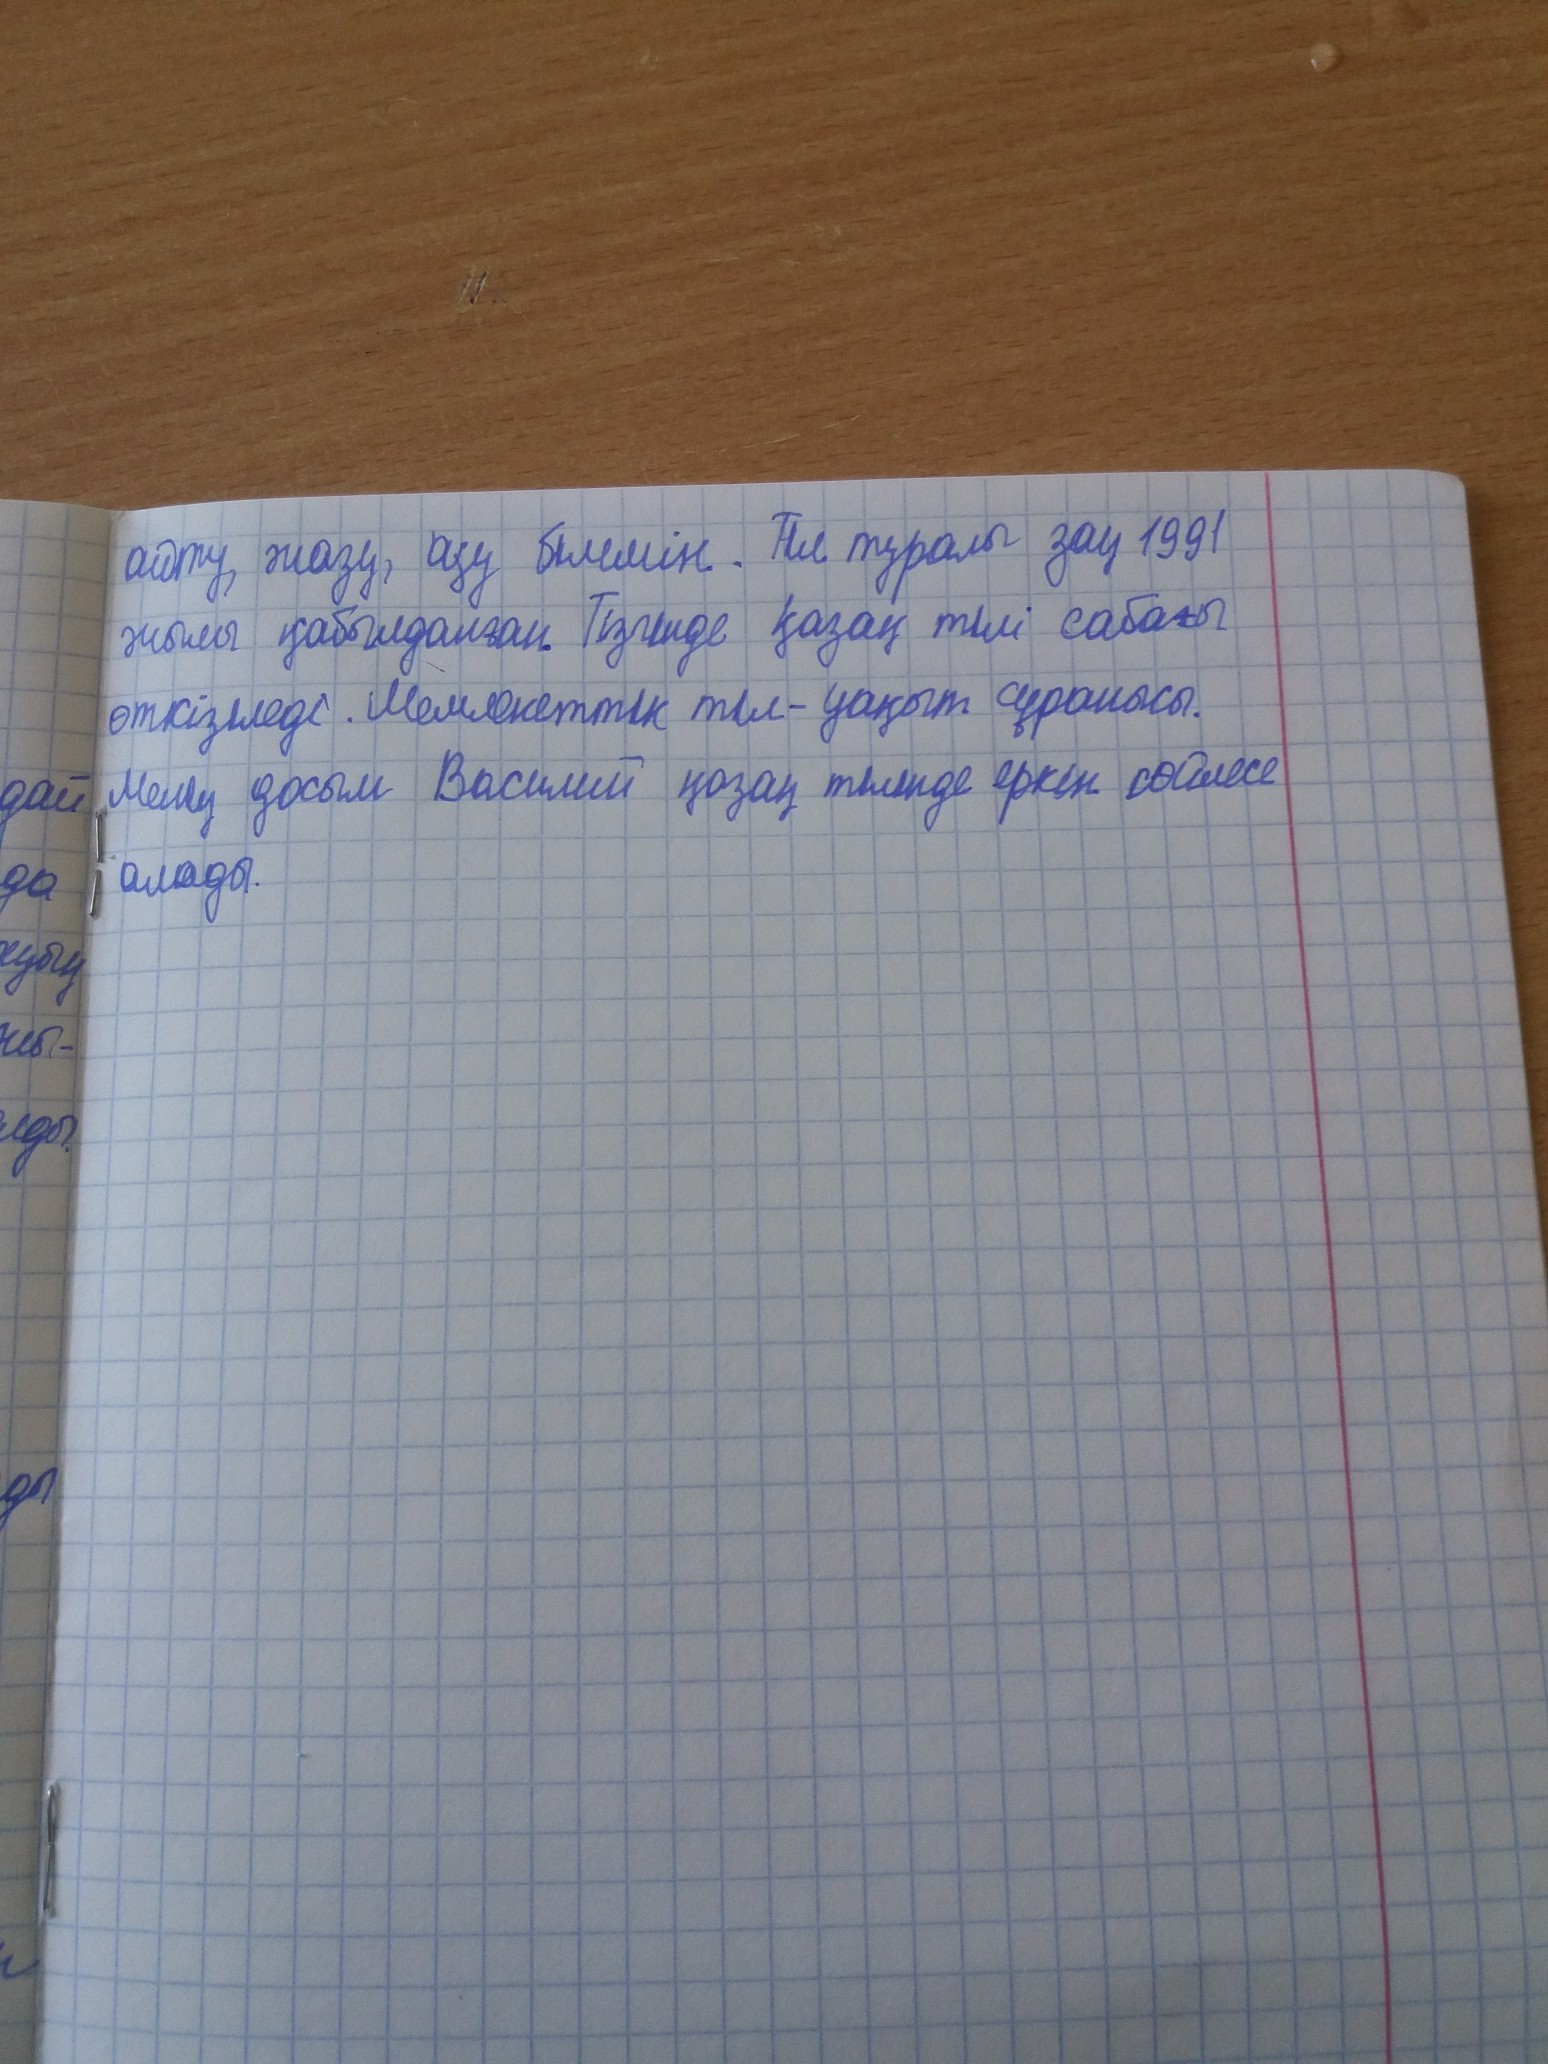 айту, жазу, оқу білемін. Тіл туралы заң 1991
жылы қабылданған. Тізгінде қазақ тілі сабағы
өткізіледі. Мемлекеттік тіл - уақыт сұранысы.
Менің досым Василий қазақ тілінде еркін сөйлесе
алады.
дай
да
ды